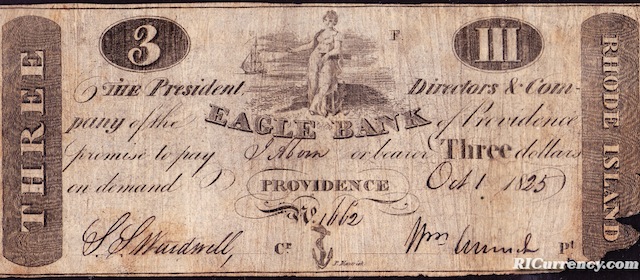 THREE
3
F
III
RHODE ISLAND
THE President, Directors & Com-
pany of the EAGLE BANK of Providence
promise to pay or bearer Three dollars
on demand PROVIDENCE Oct 1 1825
No. 1662
S. S. Wardwell, Cr. Wm pt
RICurrency.com